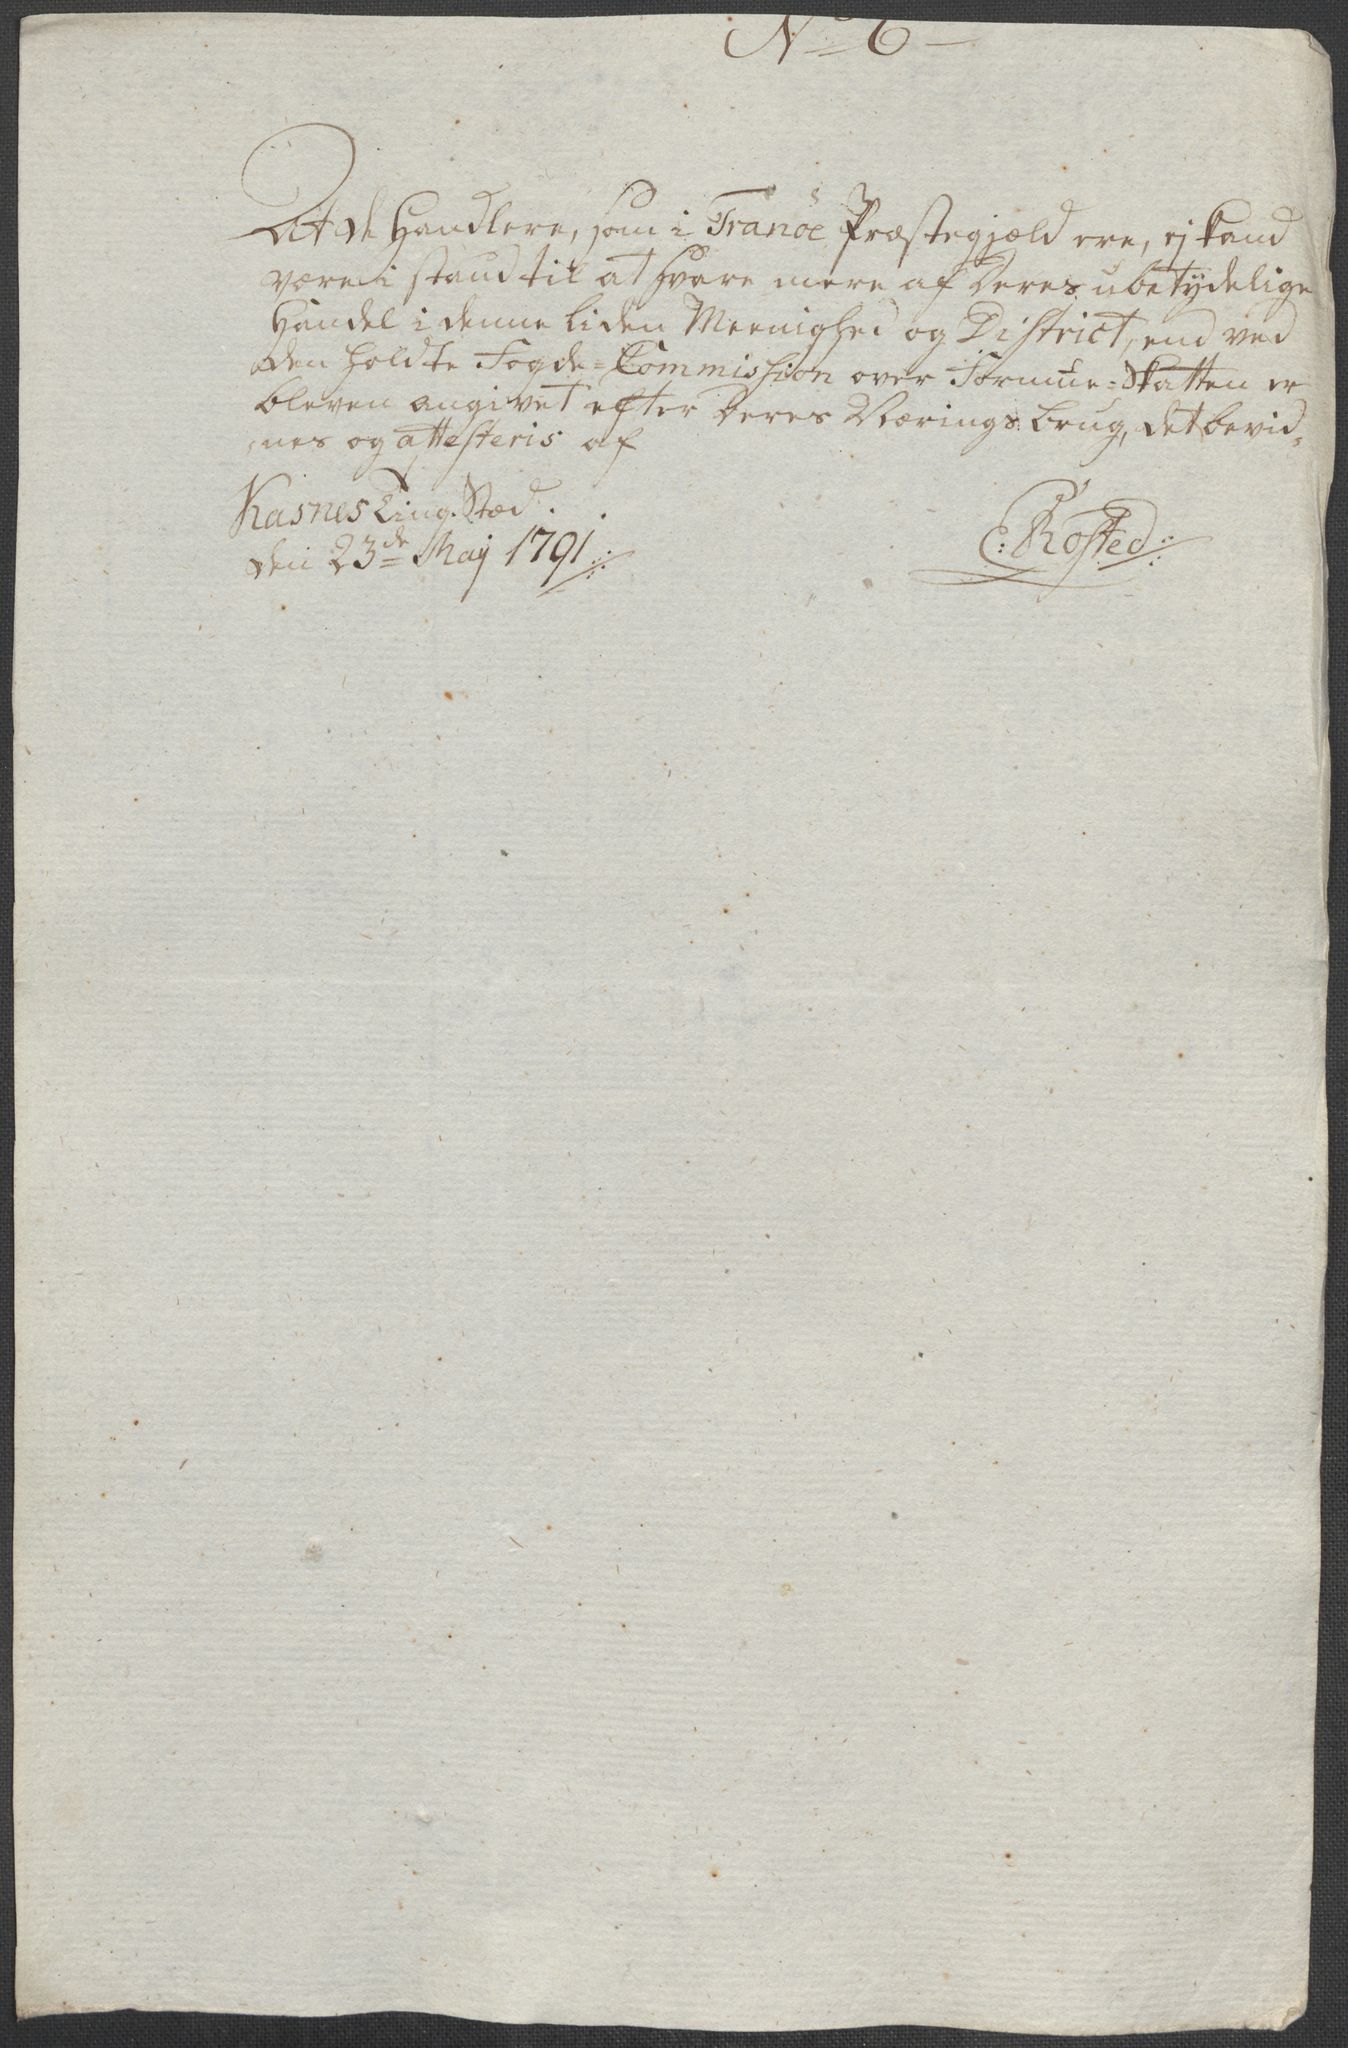 No 6
At de Handlere, som i Tranöe Præstegjæld ere, ej kand
være i stand til at svare mere af Deres ubetÿdelige
Handel i denne liden Meenighed og District, end ved
den holdte Fogde-Commission over Formue-Skatten er
bleven angivet efter Deres Nærings brug, det bevid-
nes og attesteris af
Kasnes Ting-Stæd.
den 23de Maj 1791.
C: Rosted